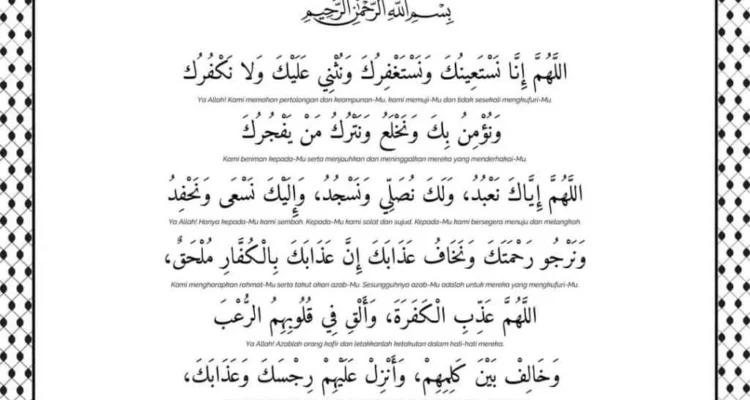 بِسْمِ اللَّهِ الرَّحْمَٰنِ الرَّحِيمِ
اللَّهُمَّ إِنَّا نَسْتَعِينُكَ وَنَسْتَغْفِرُكَ وَنُثْنِي عَلَيْكَ وَلَا نَكْفُرُكَ
Ya Allah! Kami memohon pertolongan dan keampunan-Mu, kami memuji-Mu dan tidak sesekali mengkufuri-Mu.
وَنُؤْمِنُ بِكَ وَنَخْلَعُ وَنَتْرُكُ مَنْ يَفْجُرُكَ
Kami beriman kepada-Mu serta menjauhkan dan meninggalkan mereka yang menderhakai-Mu.
اللَّهُمَّ إِيَّاكَ نَعْبُدُ، وَلَكَ نُصَلِّي وَنَسْجُدُ، وَإِلَيْكَ نَسْعَى وَنَحْفِدُ
Ya Allah! Hanya kepada-Mu kami sembah. Kepada-Mu kami solat dan sujud. Kepada-Mu kami bersegera menuju dan melangkah.
وَنَرْجُو رَحْمَتَكَ وَنَخَافُ عَذَابَكَ إِنَّ عَذَابَكَ بِالْكُفَّارِ مُلْحَقٌ،
Kami mengharapkan rahmat-Mu serta takut akan azab-Mu. Sesungguhnya azab-Mu adalah untuk mereka yang mengkufuri-Mu.
اللَّهُمَّ عَذِّبِ الْكَفَرَةَ، وَأَلْقِ فِي قُلُوبِهِمُ الرُّعْبَ
Ya Allah! Azablah orang kafir dan letakkanlah ketakutan dalam hati-hati mereka.
وَخَالِفْ بَيْنَ كَلِمِهِمْ، وَأَنْزِلْ عَلَيْهِمْ رِجْسَكَ وَعَذَابَكَ،